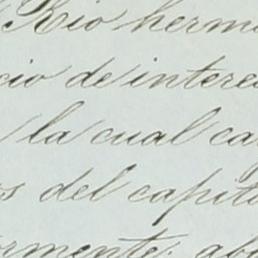 Rio herm
cio de intere
la cual ca
os del capit
ormente. ab